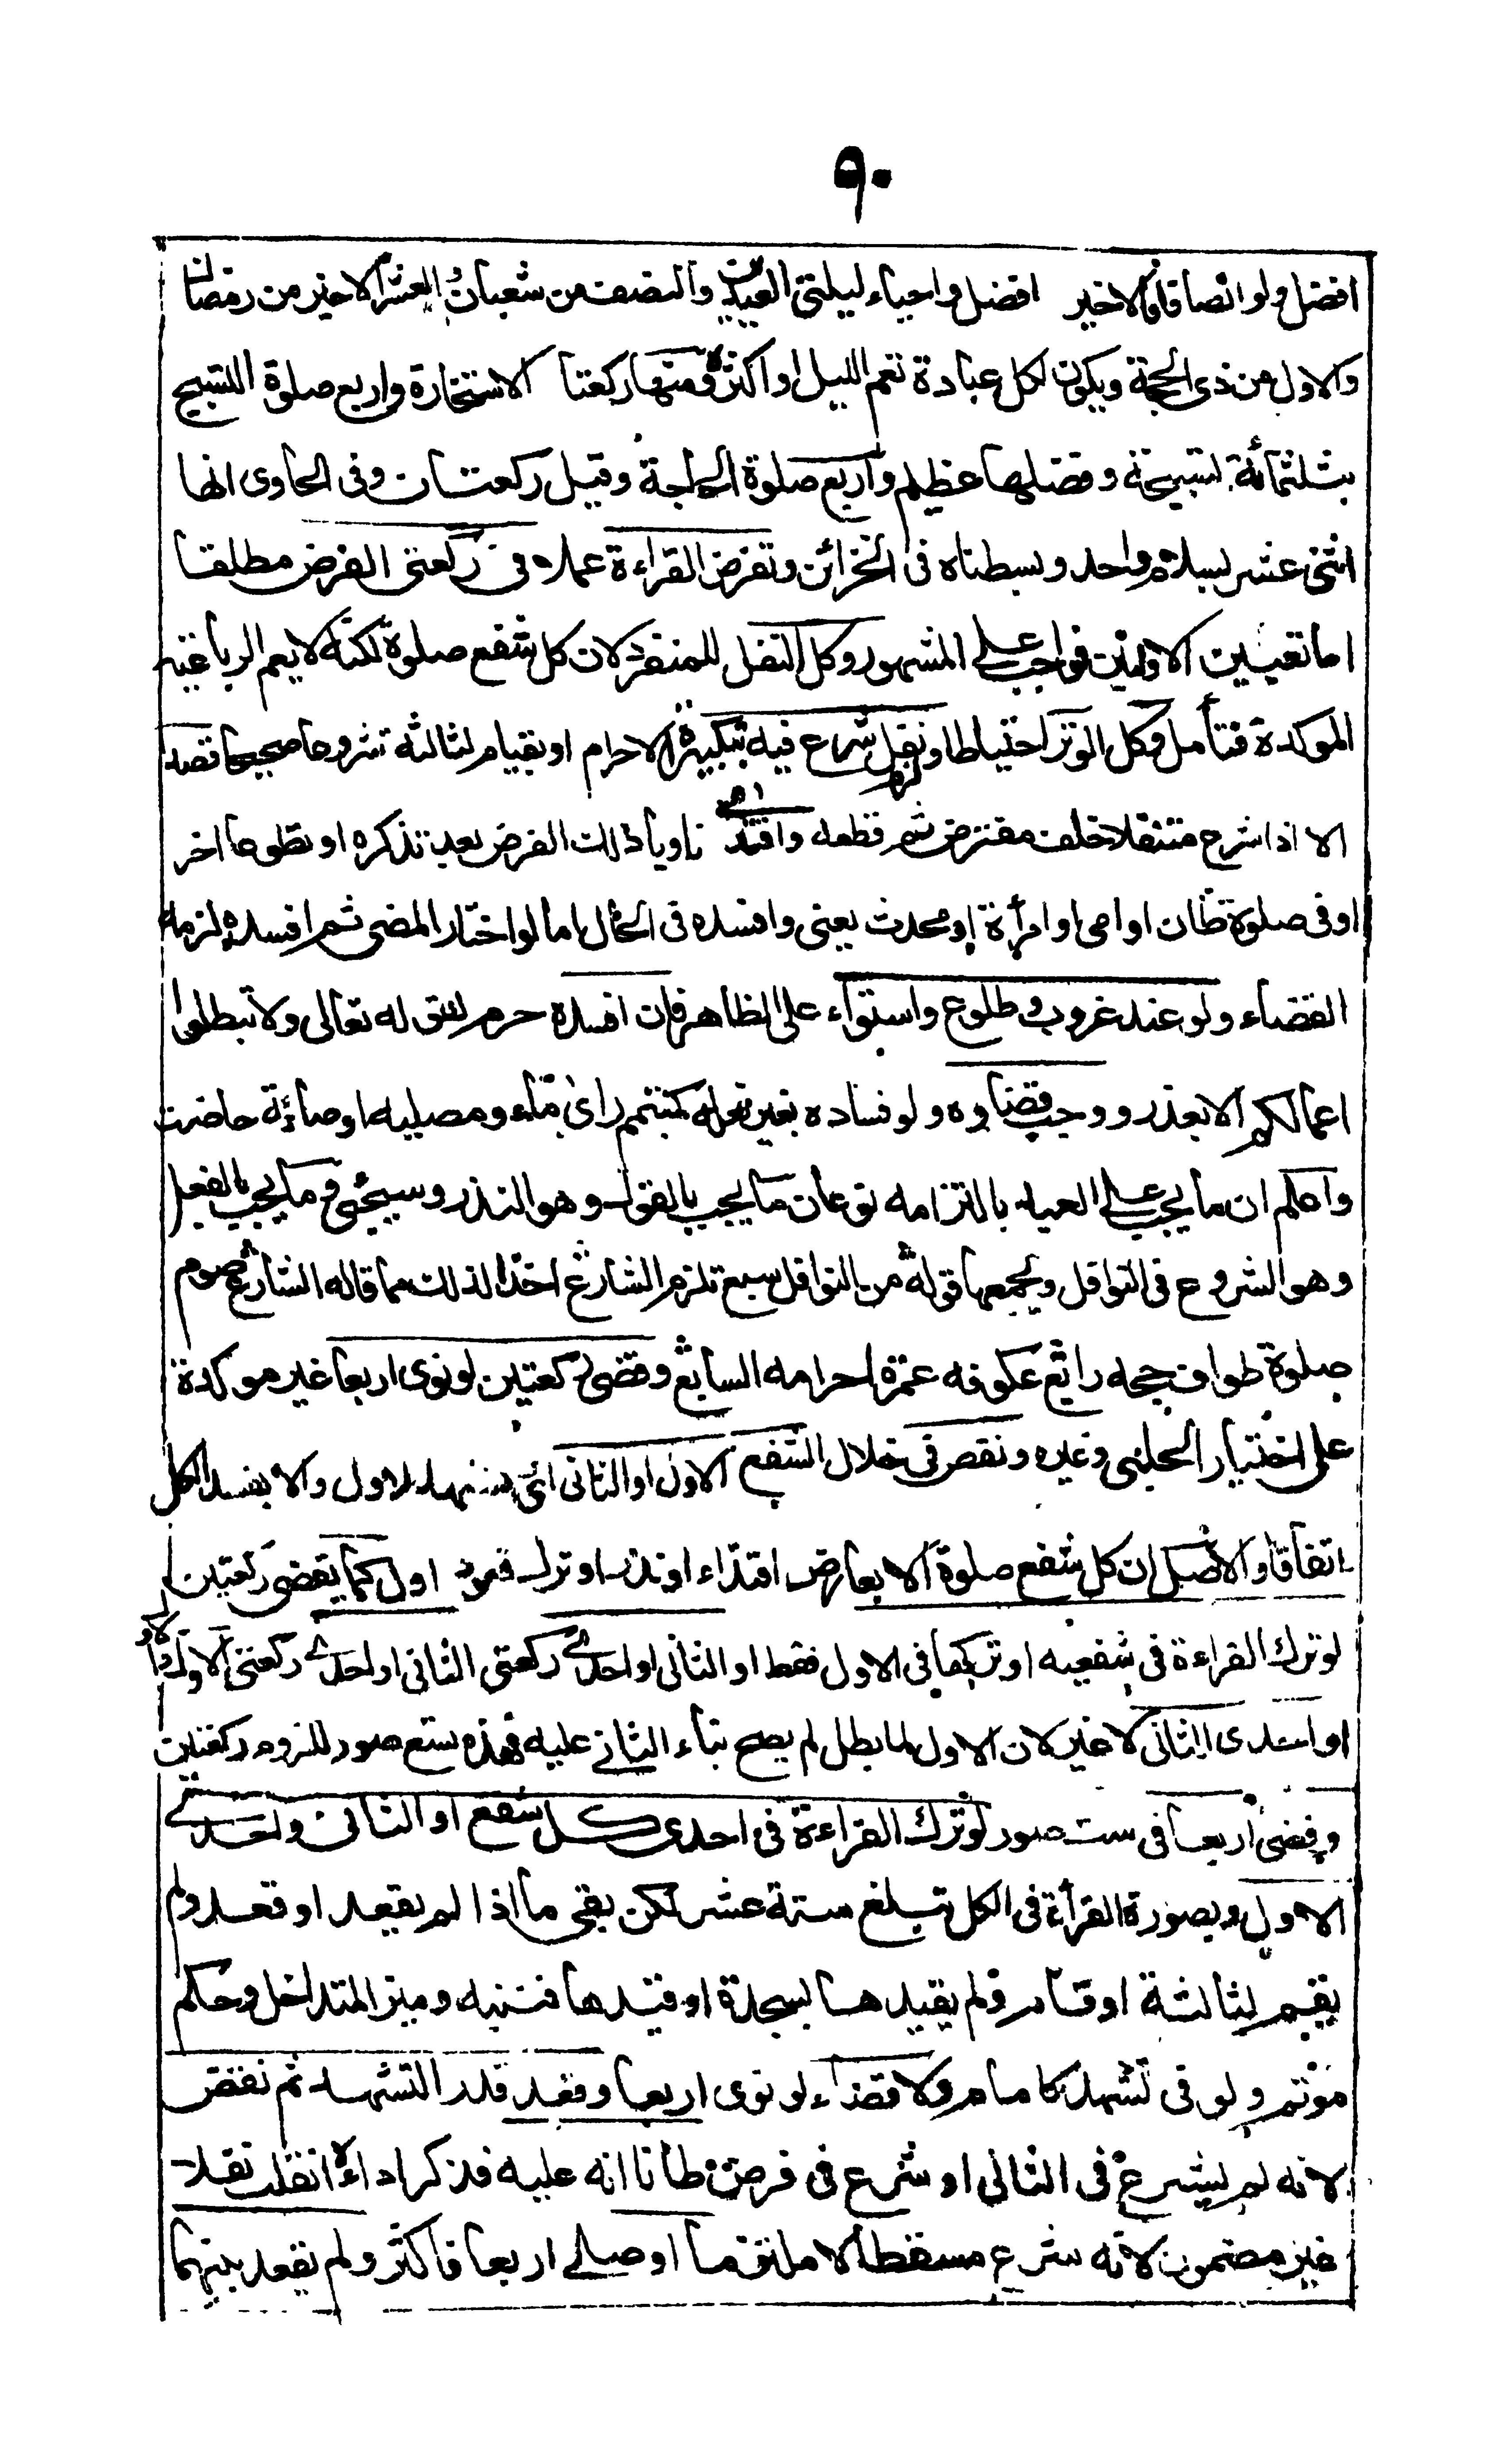 ٩٠
افضل ولو انصافا فالاخير افضل واحياء ليلتى العيدين والنصف من شعبان والعشر الاخير من رمضان
والاول من ذى الحجة ويكون لكل عبادة تعم الليل او اكثره ومنها ركعتا الاستخارة واربع صلوة التسبيح
بثلثمائة تسبيحة وفضلها عظيم واربع صلوة الحاجة وقيل ركعتان وفى الحاوى انها
اثنى عشر بسلام واحد وبسطناه فى الخزائن وتفرض القراءة عملا فى ركعتى الفرض مطلقا
اما تعيين الاوليين فواجب على المشهور وكل النفل للمنفرد لان كل شفع صلوة لكنه لا يعم الرباعية
الموكدة فتأمل وكل الوتر احتياطا ولزم نفل شرع فيه بتكبيرة الاحرام او بقيام لثالثة شروعا صحيحا قصدا
الا اذا شرع متنفلا خلف مفترض ثم قطعه واقتدى ناويا ذلك الفرض بعد تذكره او تطوعا اخر
او فى صلوة ظان او امى او امرأة او محدث يعنى وافسده فى الحال اما لو اختار المضى ثم افسده لزمه
القضاء ولو عند غروب وطلوع واستواء على الظاهر فان افسده حرم لقوله تعالى ولا تبطلوا
اعمالكم الا بعذر ووجب قضاوه ولو فساده بغير فعله كمتيمم راى ماء ومصلية او صائمة حاضت
واعلم ان ما يجب على العبد بالتزامه نوعان ما يجب بالقول وهو النذر وسيجئ وما يجب بالفعل
وهو الشروع فى النوافل ويجمعها قوله من النوافل سبع تلزم الشارع اخذا لذلك مما قاله الشارع صوم
صلوة طواف حجه رابع عكوفه عمرة احرامه السابع وقضى ركعتين لو نوى اربعا غير موكدة
على اختيار الحلبى وغيره ونقض فى خلال الشفع الاول او الثانى اى وتشهد للاول والا يفسد الكل
اتفاقا والاصل ان كل شفع صلوة الا بعارض اقتداء او نذر او ترك قعود اول كما يقضى ركعتين
لو ترك القراءة فى شفعيه او تركها فى الاول فقط او الثانى او احدى ركعتى الثانى او احدى ركعتى الاول او الاول
او احدى الثانى لا غير لان الاول لما بطل لم يصح بناء الثانى عليه فهذه تسع صور للزوم ركعتين
وقضى اربعا فى ست صور لو ترك القراءة فى احدى كل شفع او الثانى واحدى
الاول وبصورة القرأة فى الكل تبلغ ستة عشر لكن بقى ما اذا لم يقعد او قعد ولم
يقم لثالثة او قام ولم يقيدها بسجدة او قيدها فتنبه وميز المتداخل وحكم
موتم ولو فى تشهد كامام ولا قضاء لو نوى اربعا وقعد قدر التشهد ثم نقض
لانه لم يشرع فى الثانى او شرع فى فرض ظانا انه عليه فذكر اداءه انقلب نفلا
غير مضمون لانه شرع مسقطا لا ملتزما او صلى اربعا فاكثر ولم يقعد بينهما